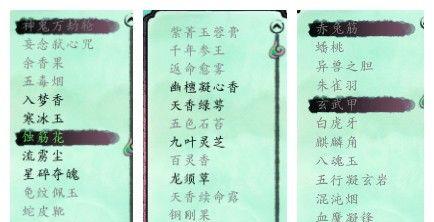 神鬼万劫蛇
妄念弑心咒
余香果
五毒烟
入梦香
寒冰玉
蚀筋花
流雳尘
星碎夺魄
龟纹佩玉
蛇皮靴
紫菁玉蓉膏
千年参王
返命愈雾
幽檀凝心香
天香绿萼
五色石苔
九叶灵芝
百灵香
龙须草
天香续命露
铜刚果
赤鬼筋
蟠桃
异兽之胆
朱雀羽
玄武甲
白虎牙
麒麟角
八魂玉
五行凝玄岩
混沌烟
血魔凝缘